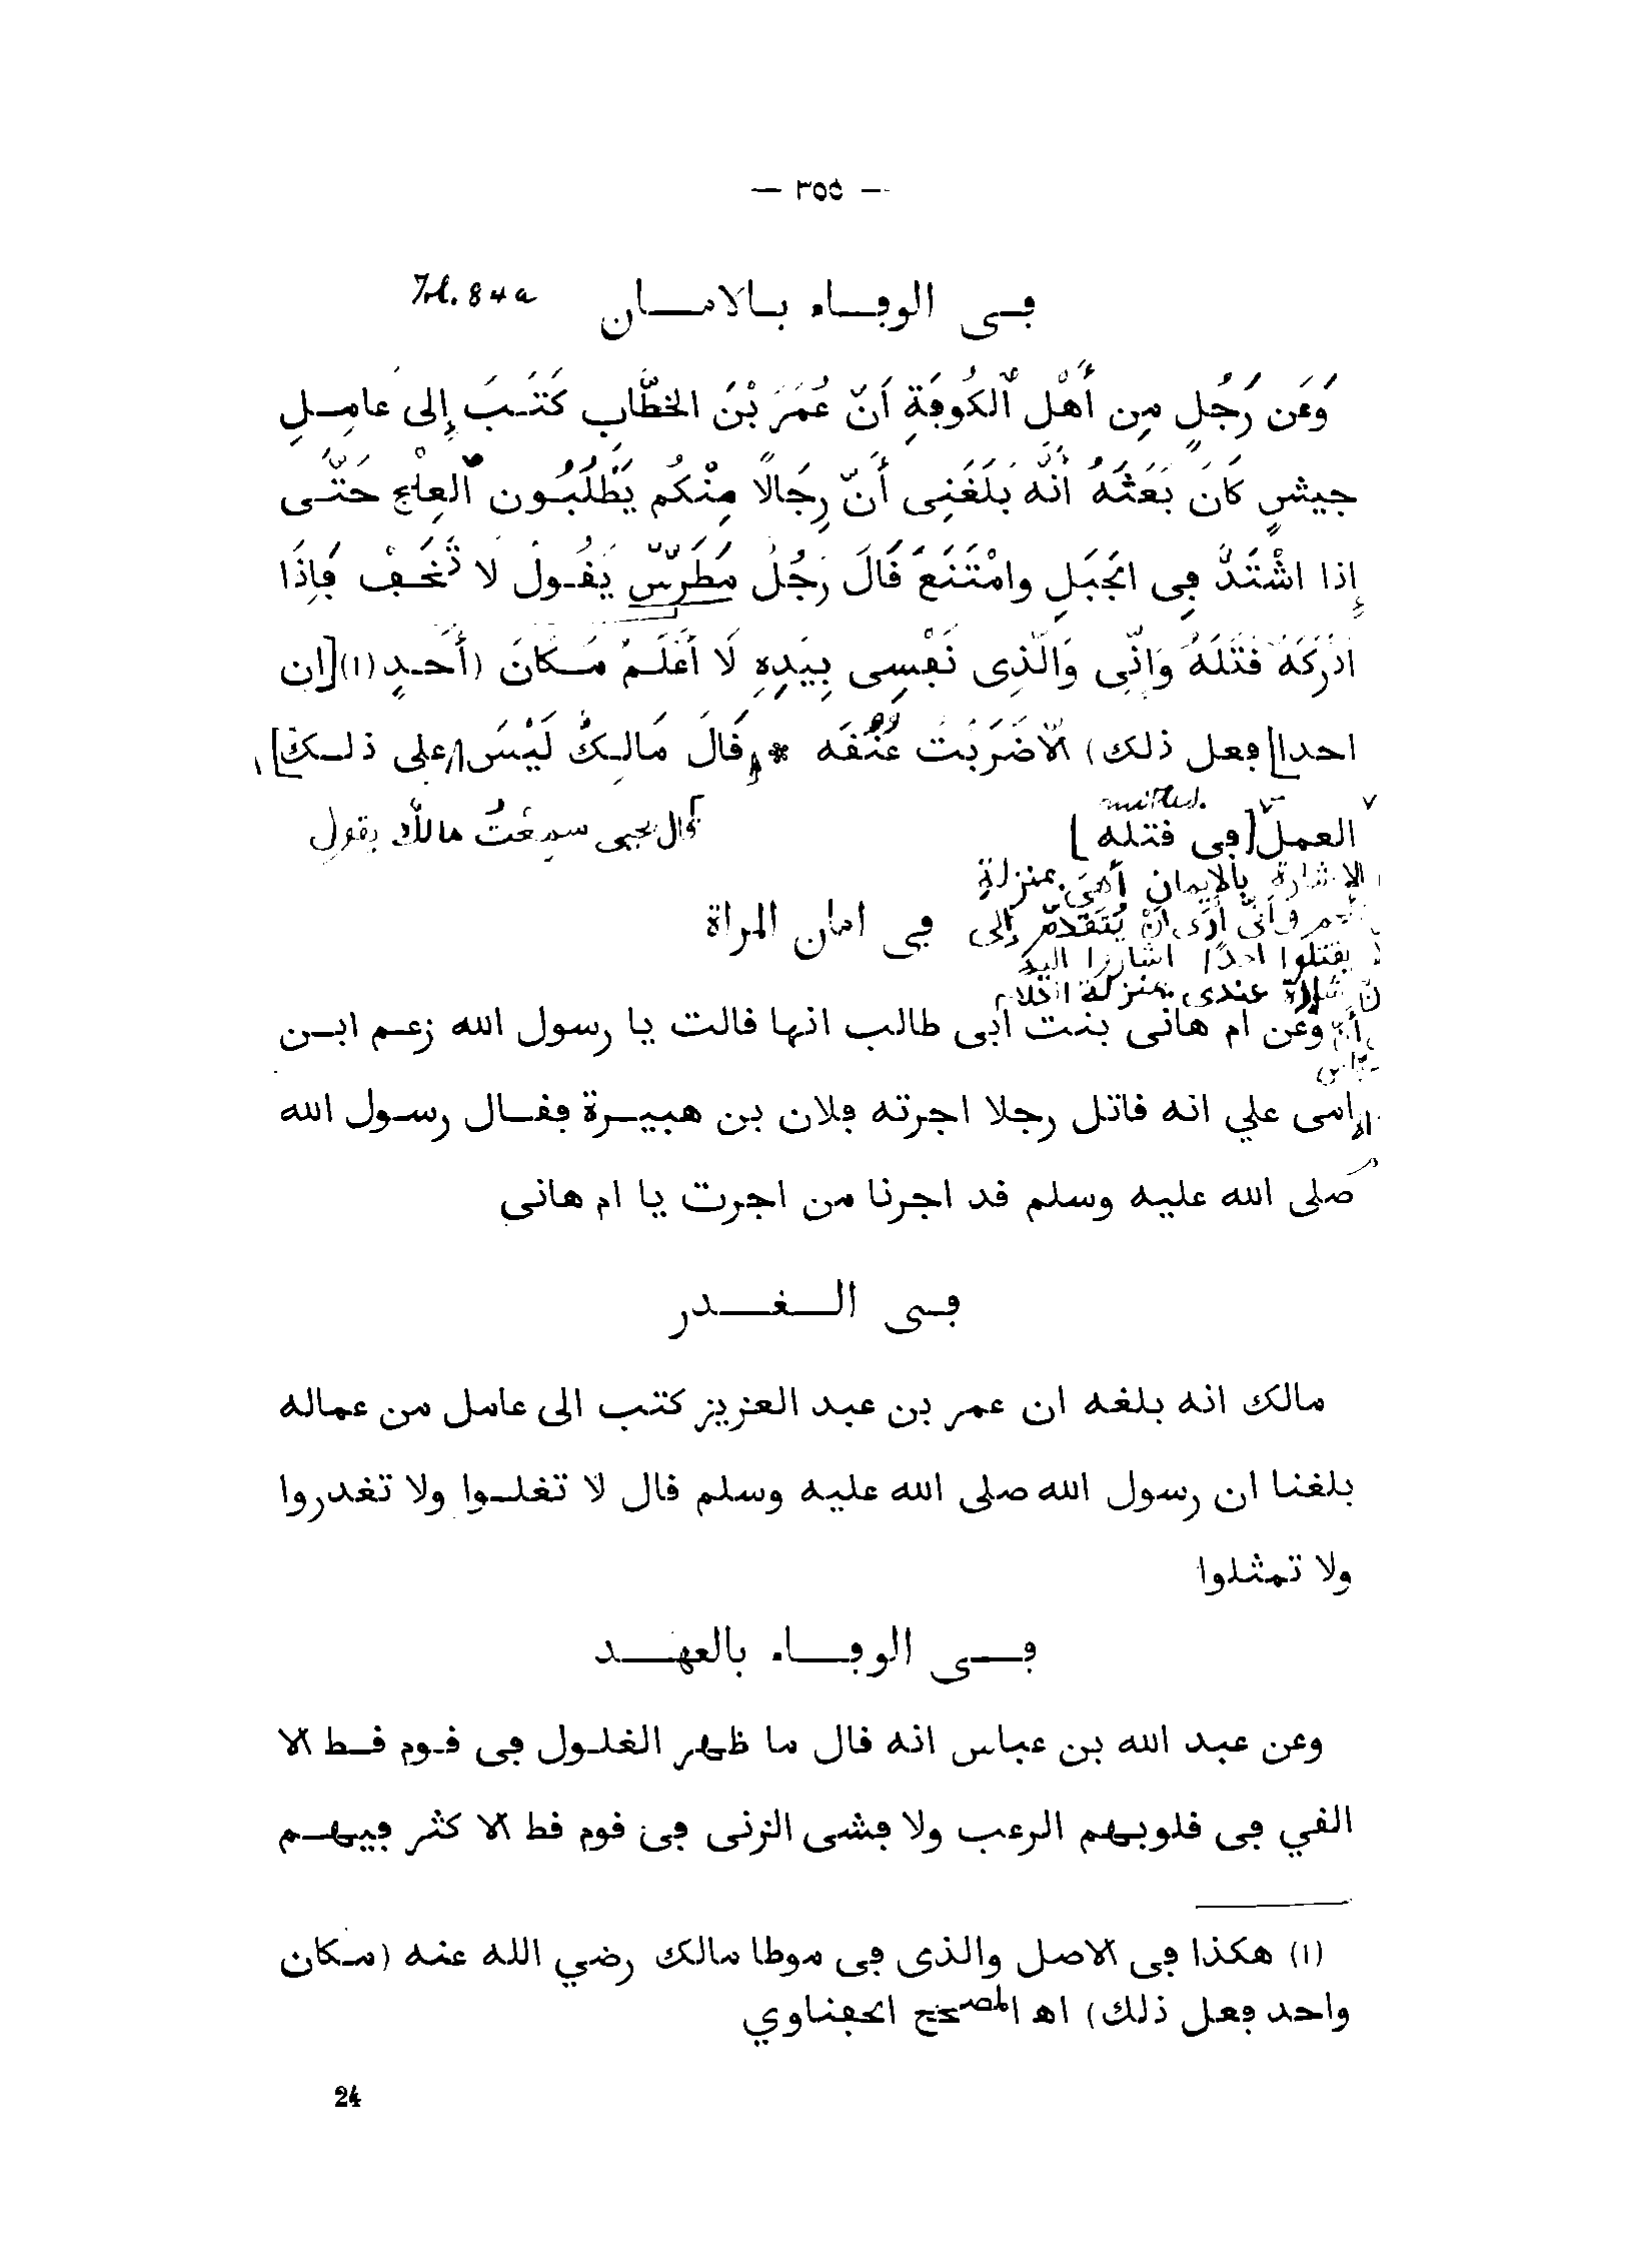 — ٣٥٥ —
فى الوفاء بالامان Fol. 84a
وَعَن رَجُلٍ مِن أَهْلِ الكُوفَةِ أَنَّ عُمَرَ بْنَ الخَطَّابِ كَتَبَ إِلى عامِلِ
جيشٍ كَانَ بَعَثَهُ أنَّهُ بَلَغَنِى أَنَّ رِجَالًا مِنْكُم يَطْلُبُون العِلْج حَتَّى
إِذا اشْتَدَّ فِى الجَبَلِ وامْتَنَعَ قَالَ رَجُلٌ مَطَرّسْ يَقُول لا تَخَفْ فَإِذَا
ادْرَكَهُ قَتَلَهُ وَانِّى وَالَّذِى نَفْسِى بِيَدِهِ لَا أَعْلَمُ مَكَانَ (أَحَدٍ (١) [ان
احدا] فعل ذلك) الّا ضَرَبْتُ عُنُقَه * وقَالَ مَالِكٌ لَيْسَ [على ذلك]
العمل [فى قتله]
قال يحيى سمِعْتُ مالك يقول
الاشارة بالإيمانِ أهِىَ بمنزلةِ
أرَى أنْ يُتَقَدَّمَ إلى
يقتلوا احدًا اشاروا اليه
عندى بمنزلة الكلام
فى امان المراة
وعن ام هانى بنت ابى طالب انها قالت يا رسول الله زعم ابن
امى علي انه قاتل رجلا اجرته فلان بن هبيرة فقال رسول الله
صلى الله عليه وسلم قد اجرنا من اجرت يا ام هانى
فى الغدر
مالك انه بلغه ان عمر بن عبد العزيز كتب الى عامل من عماله
بلغنا ان رسول الله صلى الله عليه وسلم قال لا تغلوا ولا تغدروا
ولا تمثلوا
فى الوفاء بالعهد
وعن عبد الله بن عباس انه قال ما ظهر الغلول فى قوم قط الا
القي فى قلوبهم الرعب ولا فشى الزنى فى قوم قط الا كثر فيهم
(١) هكذا فى الاصل والذى فى موطا مالك رضي الله عنه (مكان
واحد فعل ذلك) اه المصحح الحفناوي
24